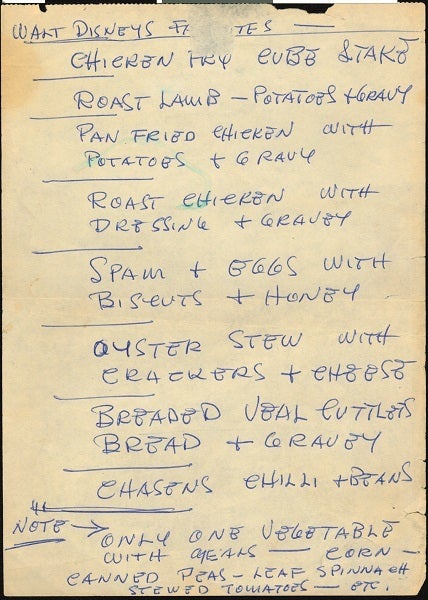 WALT DISNEYS F TES —
CHICKEN FRY CUBE STAKE
ROAST LAMB — POTATOES + GRAVY
PAN FRIED CHICKEN WITH
POTATOES + GRAVY
ROAST CHICKEN WITH
DRESSING + GRAVEY
SPAM + EGGS WITH
BISCUTS + HONEY
OYSTER STEW WITH
CRACKERS + CHEESE
BREADED VEAL CUTTLETS
BREAD + GRAVEY
CHASENS CHILLI + BEANS
NOTE → ONLY ONE VEGETABLE
WITH MEALS — CORN —
CANNED PEAS — LEAF SPINNACH
STEWED TOMATOES — ETC.